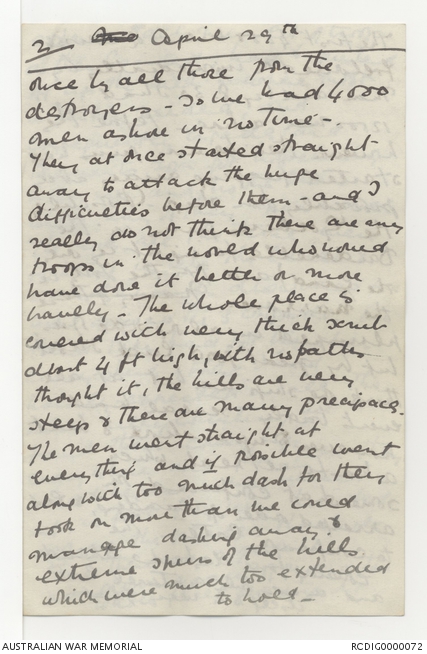 2 April 29th
once by all those from the
destroyers - so we had 4000
men ashore in no time -.
They at once started straight
away to attack the huge
difficulties before them - and I
really do not think there are any
troops in the world who would
have done it better or more
bravely - The whole place is
covered with very thick scrub
about 4 ft high, with no paths
thought it, the hills are very
steep & there are many precipaces.
The men went straight at
everything and if possible went
along with too much dash for they
took on more than we could
manage dashing away to
extreme spurs of the hills
which were much too extended
to hold -
AUSTRALIAN WAR MEMORIAL
RCDIG0000072